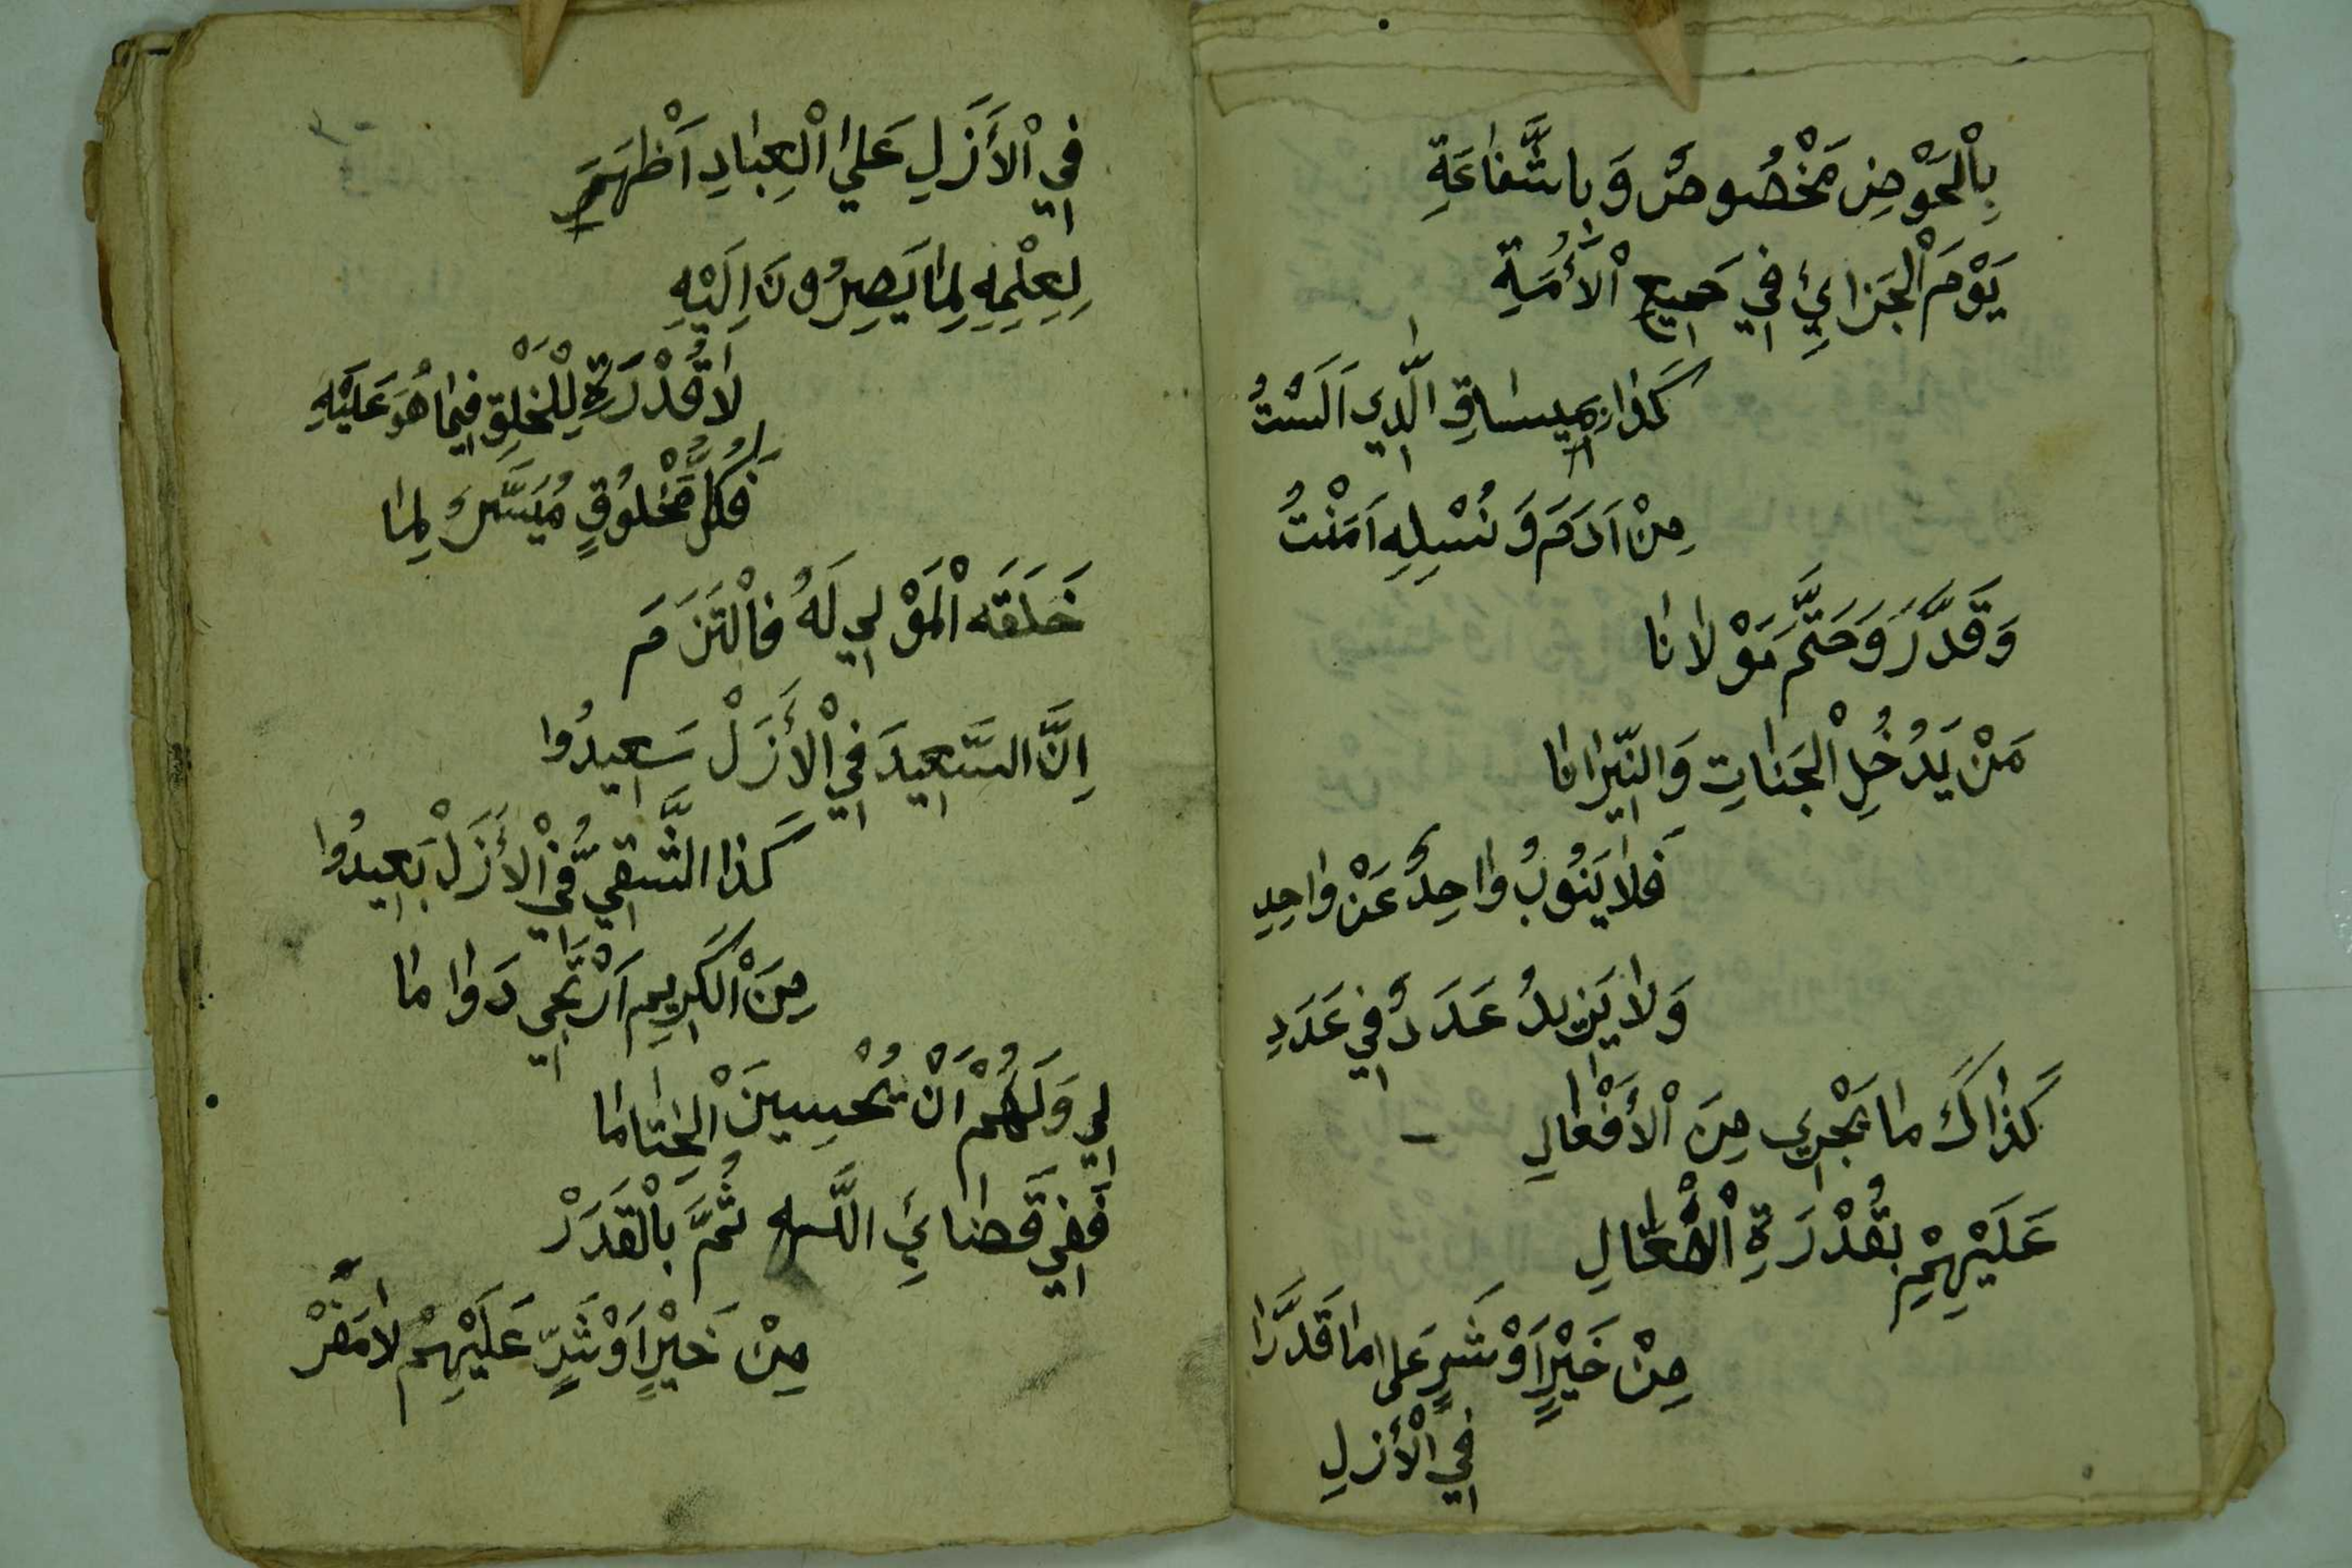 بِاْلحَوْضِ مَخْصُوصٌ وَبِاشَّفَاعَةِ
يَوْمَ اْلجَزَائِ فِي جَمِيعِ اْلأُمَّةِ
كَذَا مِيسَاقِ الَّذِي اَلَسْتُ
مِنْ اَدَمَ وَنُسْلِهِ اَمَنْتُ
وَقَدَّرَ وَحَتَّمَ مَوْلَانَا
مَنْ يَدُخُلِ اْلجَنَاتِ وَالنِّيْرَانَا
فَلَا يَنُوبُ وَاحِدٌ عَنْ وَاحِدِ
وَلَا يَزِيدُ عَدَدٌ فِي عَدَدِ
كَذَاكَ مَا يَجْرِي مِنَ اْلأَفْعَالِ
عَلَيْهِمْ بِقُدْرَةِ اْلفَعَّالِ
مِنْ خَيْرٍ اَوْ شَرٍ عَلَى مَا قَدَّرَا
فِي اْلأَزَلِ
فِي اْلأَزَلِ عَلَي اْلعِبَادِ اَظْهَرَ
لِعِلْمِهِ لِمَا يَصِيرُونَ اِلَيْهِ
لَا قُدْرَةِ لِلْخَلِقِ فِيمَا هُوَ عَلَيْهِ
فَكُلُّ مَخْلُوقٍ مُيَسَّرُ لِمَا
خَلَقَه اْلمَوْلِي لَهُ فَاْلتَزَمَ
اِنَّ السَّعِيدَ فِي اْلأَزَلْ سَعِيدُوا
كَذَا الشَّقِيُّ فِي اْلأَزَلْ بَعِيدُوا
مِنَ اْلكَرِيمِ اَرْتَجِي دَوَامَا
لِي وَلَهُمْ اَنْ يُحْسِينَ اْلخِتَامَا
فَفِي قَضَائِ اللَّهِ ثُمَّ بِاْلقَدَرْ
مِنْ خَيْرٍ اَوْ شَرٍّ عَلَيْهِمْ لَامَفَرْ